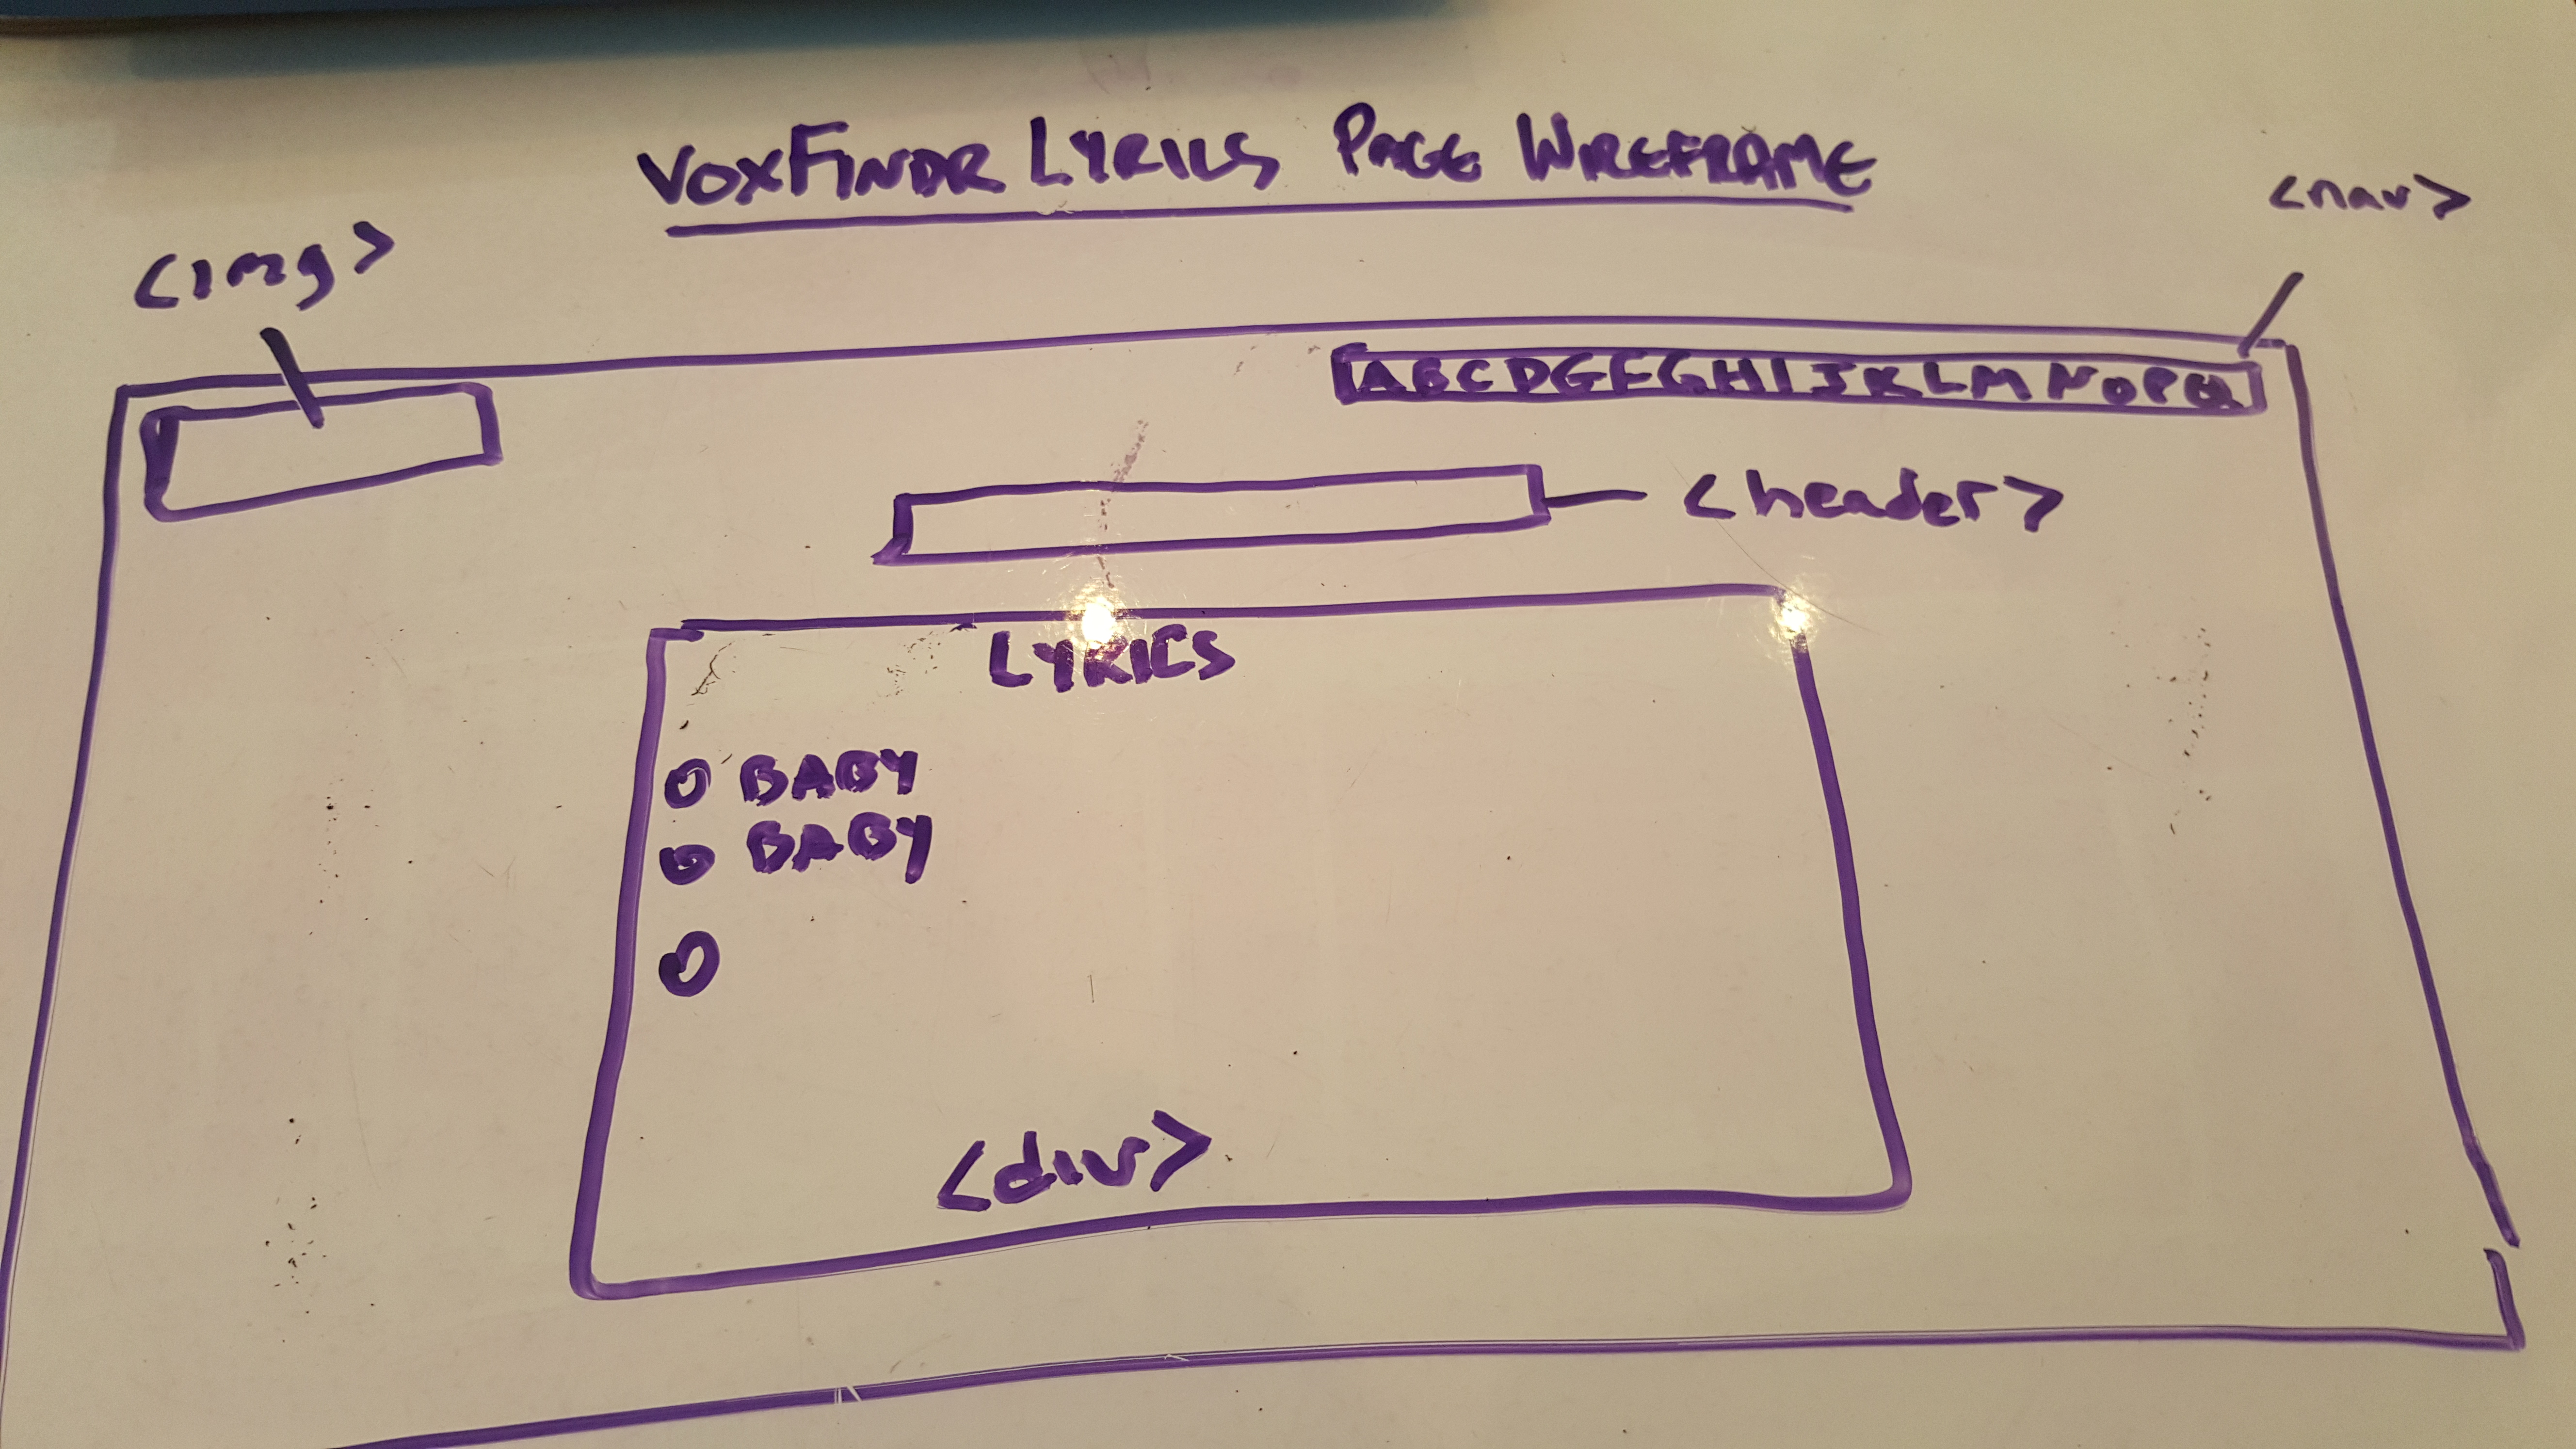 VOXFINDR LYRICS PAGE WIREFRAME
<nav>
<img>
ABCDGFGHIJKLMNOPQ
<header>
LYRICS
BABY
BABY
<div>